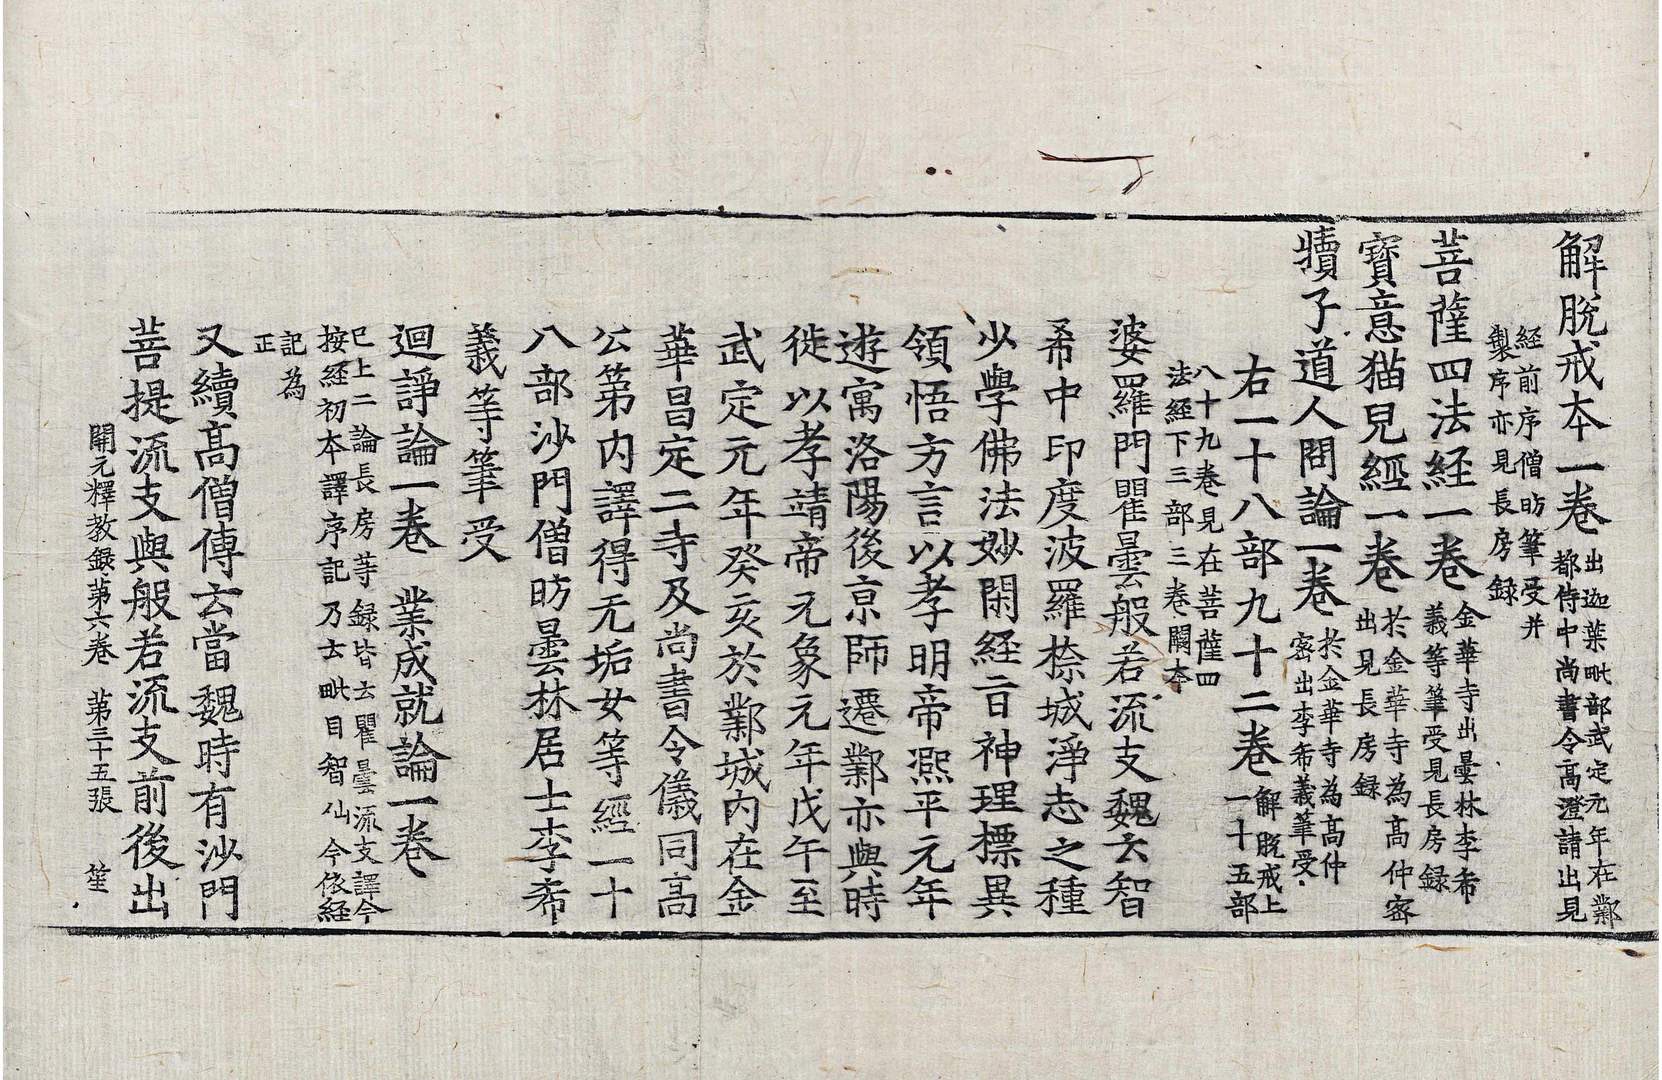 解脫戒本一卷 出迦葉毗部武定元年在鄴都侍中尚書令高澄請出見
經前序僧昉筆受并製序亦見長房録
菩薩四法經一卷 金華寺出曇林李希義等筆受見長房録
寶意猫兒經一卷 於金華寺為高仲密出見長房録
犢子道人問論一卷 於金華寺為高仲密出李希義筆受
右一十八部九十二卷 解脫戒上一十五部
八十九卷見在菩薩四法經下三部三卷闕本
婆羅門瞿曇般若流支魏云智
希中印度波羅㮈城淨志之種
少學佛法妙閑経㫖神理標異
領悟方言以孝明帝熈平元年
遊寓洛陽後京師遷鄴亦與時
徙以孝靖帝元象元年戊午至
武定元年癸亥於鄴城內在金
華昌定二寺及尚書令儀同高
公第內譯得无垢女等經一十
八部沙門僧昉曇林居士李希
義等筆受
迴諍論一卷 業成就論一卷
已上二論長房等録皆云瞿曇流支譯今按經初本譯序記乃士毗目智仙今依経
記為正
又續高僧傳云當魏時有沙門
菩提流支與般若流支前後出
開元釋教録第六卷 第三十五張 笙